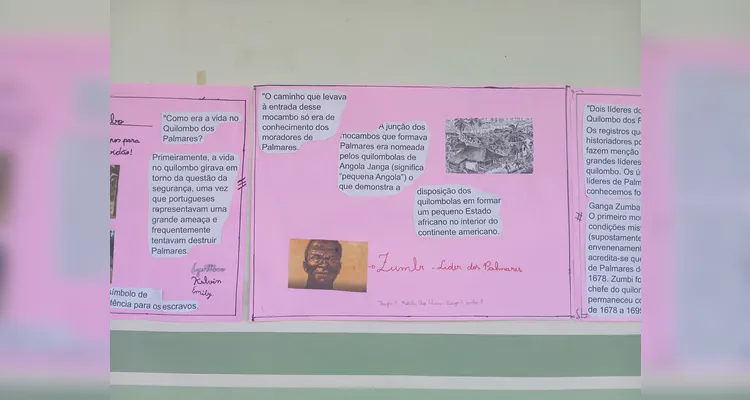 "Como era a vida no
Quilombo dos
Palmares?
Primeiramente, a vida
no quilombo girava em
torno da questão da
segurança, uma vez
que portugueses
representavam uma
grande ameaça e
frequentemente
tentavam destruir
Palmares.
Kelvin
Emily
símbolo de
tência para os escravos.
"O caminho que levava
à entrada desse
mocambo só era de
conhecimento dos
moradores de
Palmares.
A junção dos
mocambos que formava
Palmares era nomeada
pelos quilombolas de
Angola Janga (significa
"pequena Angola") o
que demonstra a
disposição dos
quilombolas em formar
um pequeno Estado
africano no interior do
continente americano.
Zumbi - Líder dos Palmares
"Dois líderes do
Quilombo dos F
Os registros qu
historiadores po
fazem menção
grandes líderes
quilombo. Os ú
líderes de Palm
conhecemos fo
Ganga Zumba
O primeiro mo
condições mis
(supostamente
envenenament
acredita-se que
de Palmares d
1678. Zumbi fo
chefe do quilor
permaneceu co
de 1678 a 1695